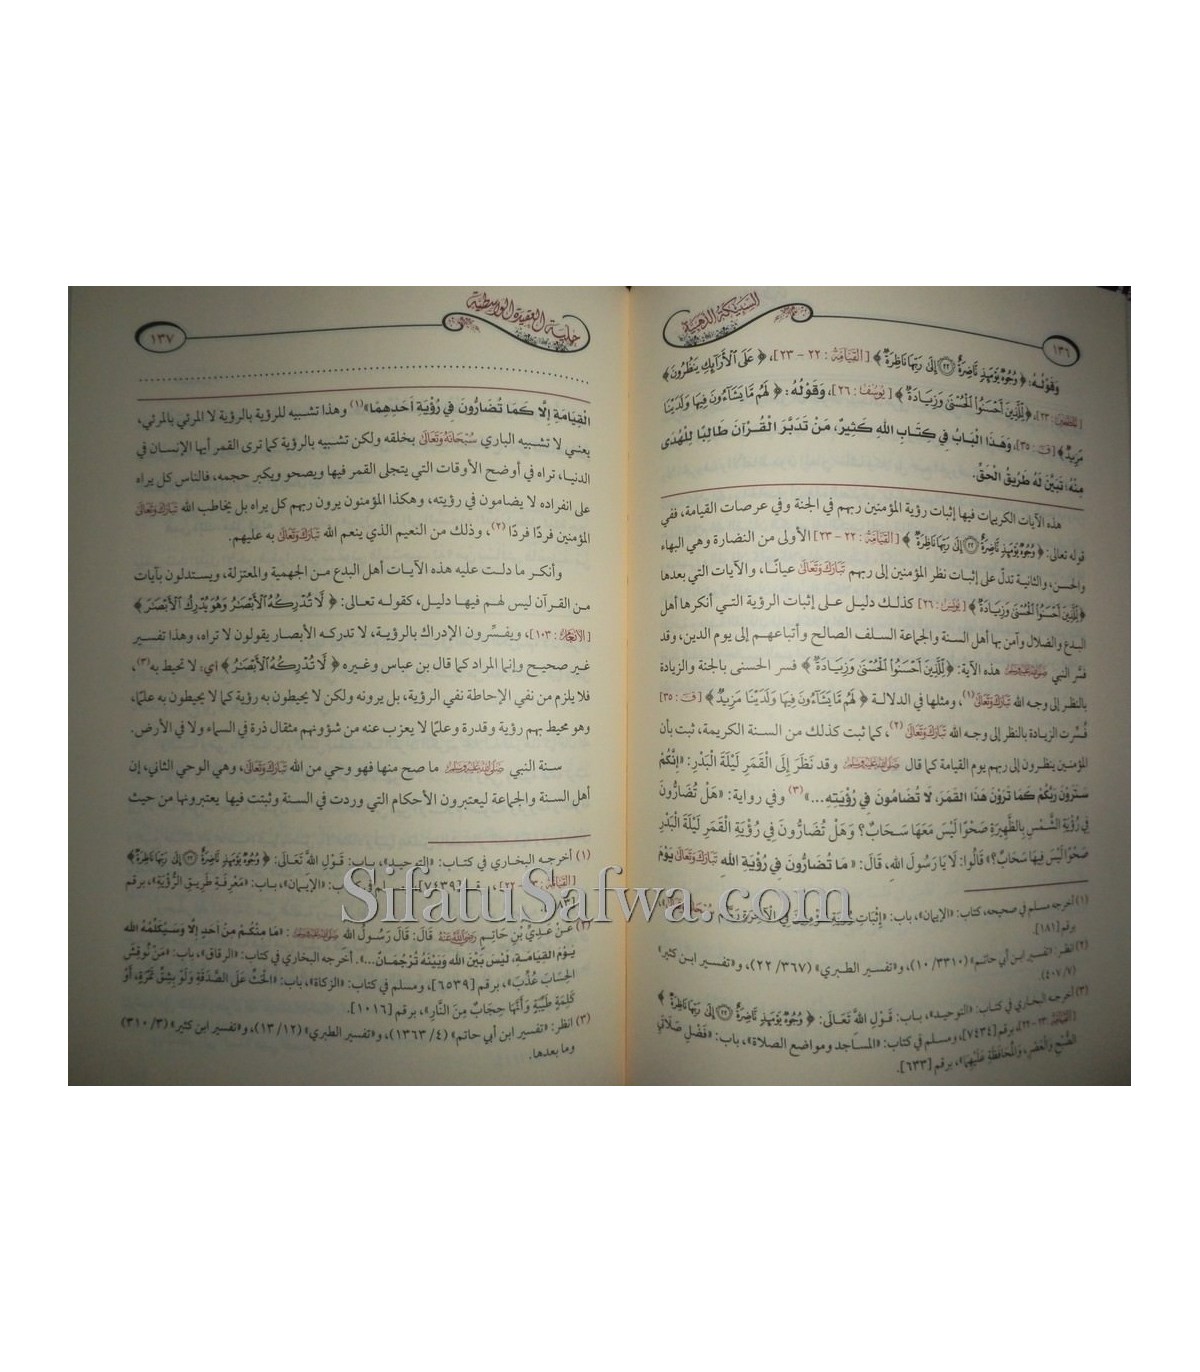 ١٣٦
السبيكة الذهبية
وَقَوْلُهُ: ﴿ وُجُوهٌ يَوْمَئِذٍ نَّاضِرَةٌ ۝٢٢ إِلَىٰ رَبِّهَا نَاظِرَةٌ ﴾ [القيامة: ٢٢ - ٢٣]، ﴿ عَلَى ٱلْأَرَآئِكِ يَنظُرُونَ ﴾
[المطففين: ٢٣]، ﴿لِّلَّذِينَ أَحْسَنُوا۟ ٱلْحُسْنَىٰ وَزِيَادَةٌ ﴾ [يونس: ٢٦]، وَقَوْلُهُ: ﴿ لَهُم مَّا يَشَآءُونَ فِيهَا وَلَدَيْنَا
مَزِيدٌ ﴾ [ق: ٣٥]، وَهَذَا الْبَابُ فِي كِتَابِ اللهِ كَثِيرٌ، مَنْ تَدَبَّرَ الْقُرْآنَ طَالِبًا لِلْهُدَى
مِنْهُ؛ تَبَيَّنَ لَهُ طَرِيقُ الْحَقِّ.
هذه الآيات الكريمات فيها إثبات رؤية المؤمنين ربهم في الجنة وفي عرصات القيامة، ففي
قوله تعالى: ﴿ وُجُوهٌ يَوْمَئِذٍ نَّاضِرَةٌ ۝٢٢ إِلَىٰ رَبِّهَا نَاظِرَةٌ ﴾ [القيامة: ٢٢ - ٢٣] الأولى من النضارة وهي البهاء
والحسن، والثانية تدلّ على إثبات نظر المؤمنين إلى ربهم تَبَارَكَ وَتَعَالَى عيانًا، والآيات التي بعدها
﴿لِّلَّذِينَ أَحْسَنُوا۟ ٱلْحُسْنَىٰ وَزِيَادَةٌ ﴾ [يونس: ٢٦] كذلك دليل على إثبات الرؤية التي أنكرها أهل
البدع والضلال وآمن بها أهل السنة والجماعة السلف الصالح وأتباعهم إلى يوم الدين، وقد
فسَّر النبي صلى الله عليه وسلم هذه الآية: ﴿لِّلَّذِينَ أَحْسَنُوا۟ ٱلْحُسْنَىٰ وَزِيَادَةٌ ﴾ فسر الحسنى بالجنة والزيادة
بالنظر إلى وجه الله تَبَارَكَ وَتَعَالَى(١)، ومثلها في الدلالة ﴿ لَهُم مَّا يَشَآءُونَ فِيهَا وَلَدَيْنَا مَزِيدٌ ﴾ [ق: ٣٥]
فُسِّرت الزيادة بالنظر إلى وجه الله تَبَارَكَ وَتَعَالَى(٢)، كما ثبت كذلك من السنة الكريمة، ثبت بأن
المؤمنين ينظرون إلى ربهم يوم القيامة كما قال صلى الله عليه وسلم وقد نَظَرَ إِلَى الْقَمَرِ لَيْلَةَ الْبَدْرِ: «إِنَّكُمْ
سَتَرَوْنَ رَبَّكُمْ كَمَا تَرَوْنَ هَذَا القَمَرَ، لَا تُضَامُونَ فِي رُؤْيَتِهِ...»(٣) وفي رواية: «هَلْ تُضَارُّونَ
فِي رُؤْيَةِ الشَّمْسِ بِالظَّهِيرَةِ صَحْوًا لَيْسَ مَعَهَا سَحَابٌ؟ وَهَلْ تُضَارُّونَ فِي رُؤْيَةِ الْقَمَرِ لَيْلَةَ الْبَدْرِ
صَحْوًا لَيْسَ فِيهَا سَحَابٌ؟» قَالُوا: لَا يَا رَسُولَ اللهِ، قَالَ: «مَا تُضَارُّونَ فِي رُؤْيَةِ اللهِ تَبَارَكَ وَتَعَالَى يَوْمَ
(١) أخرجه مسلم في صحيحه، كتاب: «الإيمان»، باب: «إِثْبَاتِ رُؤْيَةِ الْمُؤْمِنِينَ فِي الْآخِرَةِ رَبَّهُمْ»
برقم [١٨١].
(٢) انظر: «تفسير ابن أبي حاتم» (١٠/ ٣٣١٠)، و«تفسير الطبري» (٢٢/ ٣٦٧)، و«تفسير ابن كثير»
(٧/ ٤٠٧).
(٣) أخرجه البخاري في كتاب: «التوحيد»، باب: قَوْلِ اللهِ تَعَالَى: ﴿ وُجُوهٌ يَوْمَئِذٍ نَّاضِرَةٌ ۝٢٢ إِلَىٰ رَبِّهَا نَاظِرَةٌ ﴾
[القيامة: ٢٢-٢٣]، برقم [٧٤٣٤]، ومسلم في كتاب: «المساجد ومواضع الصلاة»، باب: «فَضْلِ صَلَاتَيِ
الصُّبْحِ وَالْعَصْرِ، وَالْمُحَافَظَةِ عَلَيْهِمَا»، برقم [٦٣٣].
حلية العقيدة الواسطية
١٣٧
الْقِيَامَةِ إِلَّا كَمَا تُضَارُّونَ فِي رُؤْيَةِ أَحَدِهِمَا»(١) وهذا تشبيه للرؤية بالرؤية لا المرئي بالمرئي،
يعني لا تشبيه الباري سُبْحَانَهُ وَتَعَالَى بخلقه ولكن تشبيه بالرؤية كما ترى القمر أيها الإنسان في
الدنيا، تراه في أوضح الأوقات التي يتجلى القمر فيها ويصحو ويكبر حجمه، فالناس كل يراه
على انفراده لا يضامون في رؤيته، وهكذا المؤمنون يرون ربهم كل يراه بل يخاطب الله تَبَارَكَ وَتَعَالَى
المؤمنين فردًا فردًا(٢)، وذلك من النعيم الذي ينعم الله تَبَارَكَ وَتَعَالَى به عليهم.
وأنكر ما دلت عليه هذه الآيات أهل البدع من الجهمية والمعتزلة، ويستدلون بآيات
من القرآن ليس لهم فيها دليل، كقوله تعالى: ﴿ لَّا تُدْرِكُهُ ٱلْأَبْصَـٰرُ وَهُوَ يُدْرِكُ ٱلْأَبْصَـٰرَ ﴾
[الأنعام: ١٠٣]، ويفسِّرون الإدراك بالرؤية، لا تدركه الأبصار يقولون لا تراه، وهذا تفسير
غير صحيح وإنما المراد كما قال بن عباس وغيره ﴿ لَّا تُدْرِكُهُ ٱلْأَبْصَـٰرُ ﴾ أي: لا تحيط به(٣)،
فلا يلزم من نفي الإحاطة نفي الرؤية، بل يرونه ولكن لا يحيطون به رؤية كما لا يحيطون به علمًا،
وهو محيط بهم رؤية وقدرة وعلمًا لا يعزب عنه من شؤونهم مثقال ذرة في السماء ولا في الأرض.
سنة النبي صلى الله عليه وسلم ما صح منها فهو وحي من الله تَبَارَكَ وَتَعَالَى، وهي الوحي الثاني، إن
أهل السنة والجماعة ليعتبرون الأحكام التي وردت في السنة وثبتت فيها يعتبرونها من حيث
(١) أخرجه البخاري في كتاب: «التوحيد»، باب: قَوْلِ اللهِ تَعَالَى: ﴿ وُجُوهٌ يَوْمَئِذٍ نَّاضِرَةٌ ۝٢٢ إِلَىٰ رَبِّهَا نَاظِرَةٌ ﴾
[القيامة: ٢٢-٢٣]، برقم [٧٤٣٩]، ومسلم في كتاب: «الإيمان»، باب: «مَعْرِفَةِ طَرِيقِ الرُّؤْيَةِ»، برقم
[١٨٣].
(٢) عَنْ عَدِيِّ بْنِ حَاتِمٍ رضي الله عنه قَالَ: قَالَ رَسُولُ الله صلى الله عليه وسلم: «مَا مِنْكُمْ مِنْ أَحَدٍ إِلَّا وَسَيُكَلِّمُهُ الله
يَوْمَ القِيَامَةِ، لَيْسَ بَيْنَ الله وَبَيْنَهُ تُرْجُمَانٌ...». أخرجه البخاري في كتاب: «الرقاق»، باب: «مَنْ نُوقِشَ
الحِسَابَ عُذِّبَ»، برقم [٦٥٣٩]، ومسلم في كتاب: «الزكاة»، باب: «الْحَثِّ عَلَى الصَّدَقَةِ وَلَوْ بِشِقِّ تَمْرَةٍ، أَوْ
كَلِمَةٍ طَيِّبَةٍ وَأَنَّهَا حِجَابٌ مِنَ النَّارِ»، برقم [١٠١٦].
(٣) انظر: «تفسير ابن أبي حاتم» (٤/ ١٣٦٣)، و«تفسير الطبري» (١٢/ ١٣)، و«تفسير ابن كثير» (٣/ ٣١٠)
وما بعدها.
SifatuSafwa.com